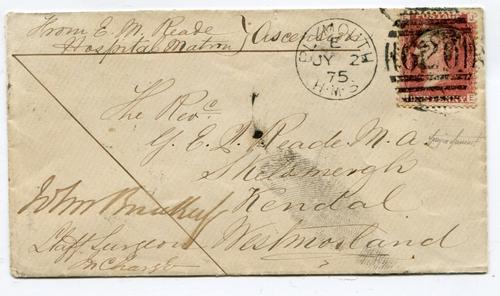 From E. M. Reade
Hospital Matron } (Ascension)
PLYMOUTH
E
JY 2
75
POSTAGE
620
ONE PENNY
The Revd.
G. E. P. Reade M. A.
Skelsmergh
Kendal
Westmorland
John
Staff Surgeon
In Charge